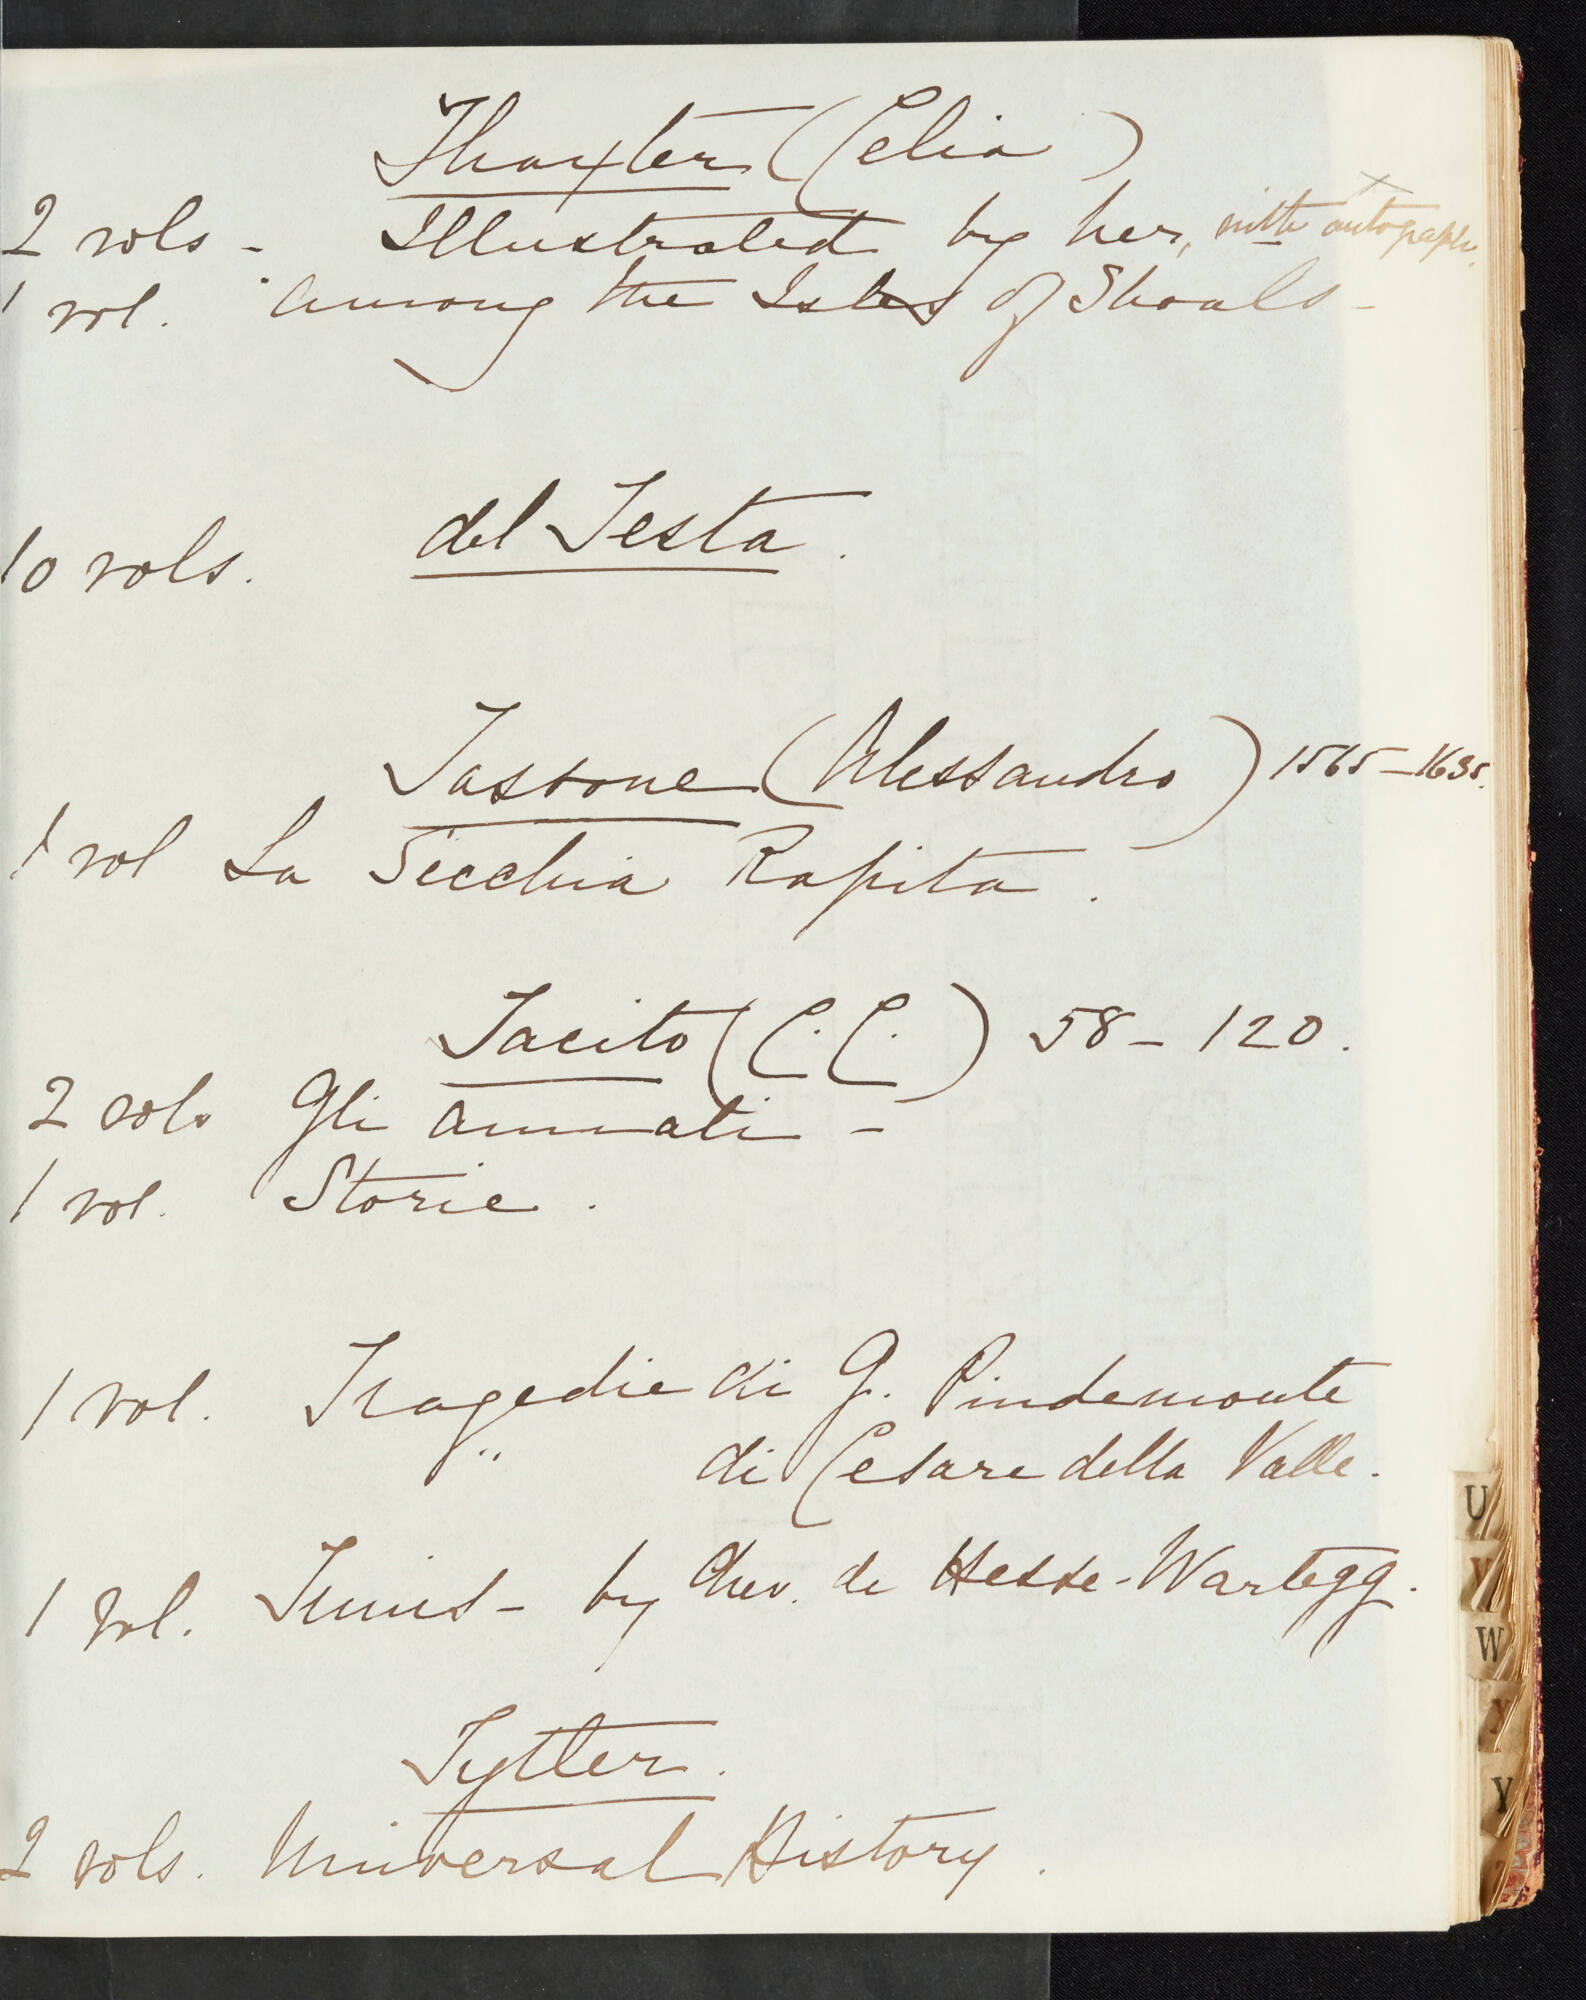 Thaxter (Celia)
2 vols - Illustrated by her, with autograph.
1 vol. Among the Isles of Shoals -
del Testa.
10 vols.
Tassone (Alessandro) 1565-1635.
1 vol La Secchia Rapita.
Tacito (C. C.) 58-120.
2 vols Gli annali -
1 vol. Storie.
1 vol. Tragedie di G. Pindemonte
" di Cesare della Valle.
1 Vol. Tunis - by Chev. de Hesse-Wartegg.
Tytler.
2 vols. Universal History.
U
V
W
X
Y